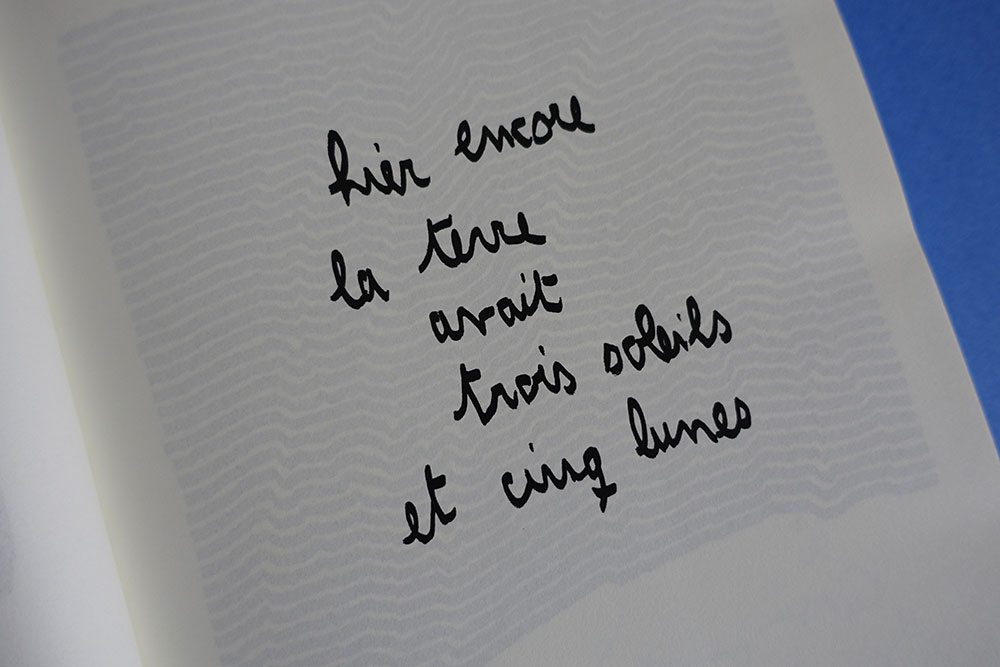 hier encore
la terre
avait
trois soleils
et cinq lunes